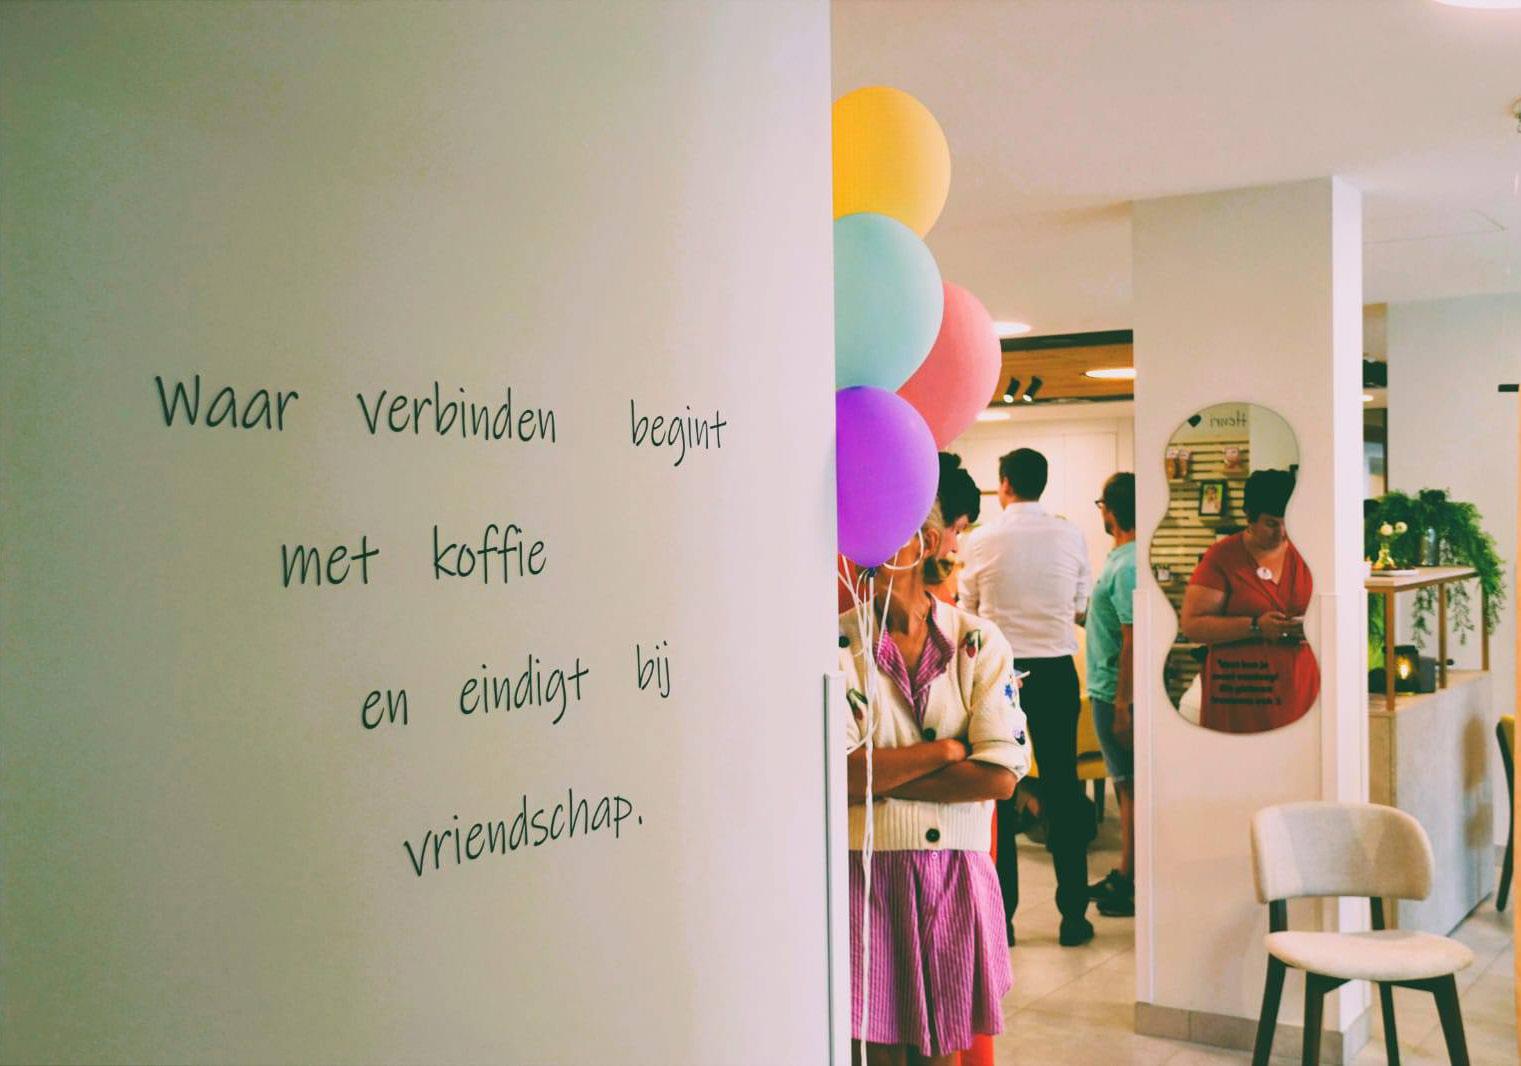 Waar verbinden begint
met koffie
en eindigt bij
vriendschap.
Henri